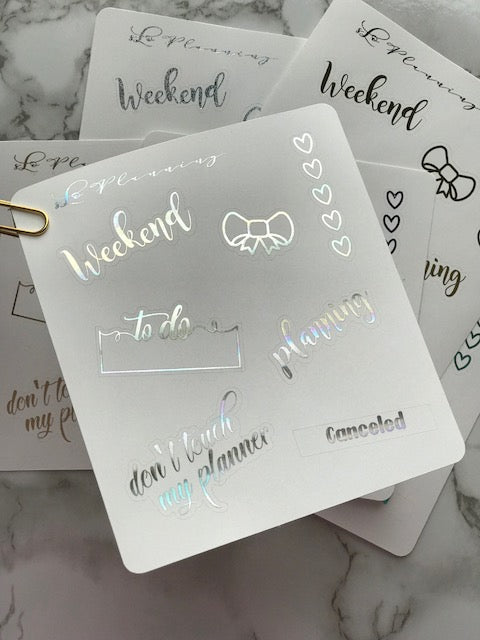 Lo Planning
Weekend
Lo Planning
Weekend
Lo Pl
Lo Planning
Weekend
to do
planning
ning
don't touch
my planner
Canceled
don't to
my pl